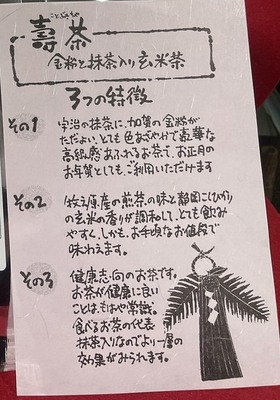 ことぶきちゃ
壽茶
金粉と抹茶入り玄米茶
3つの特徴
その1
宇治の抹茶に、加賀の金粉が
ただよい、とても色あざやかで豪華な
高級感あふれるお茶で、お正月の
お年賀としても、ご利用いただけます
その2
牧之原産の煎茶の味と静岡こしひかり
の玄米の香りが調和して、とても飲み
やすく、しかも、お手頃なお値段で
味わえます。
その3
健康志向のお茶です。
お茶が健康に良い
ことは、もはや常識。
食べるお茶の代表
抹茶入りなのでより一層の
効果がみられます。